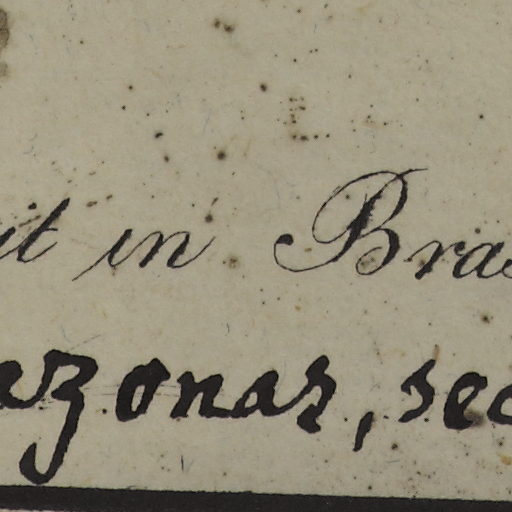 it in Bras
azonas, sec